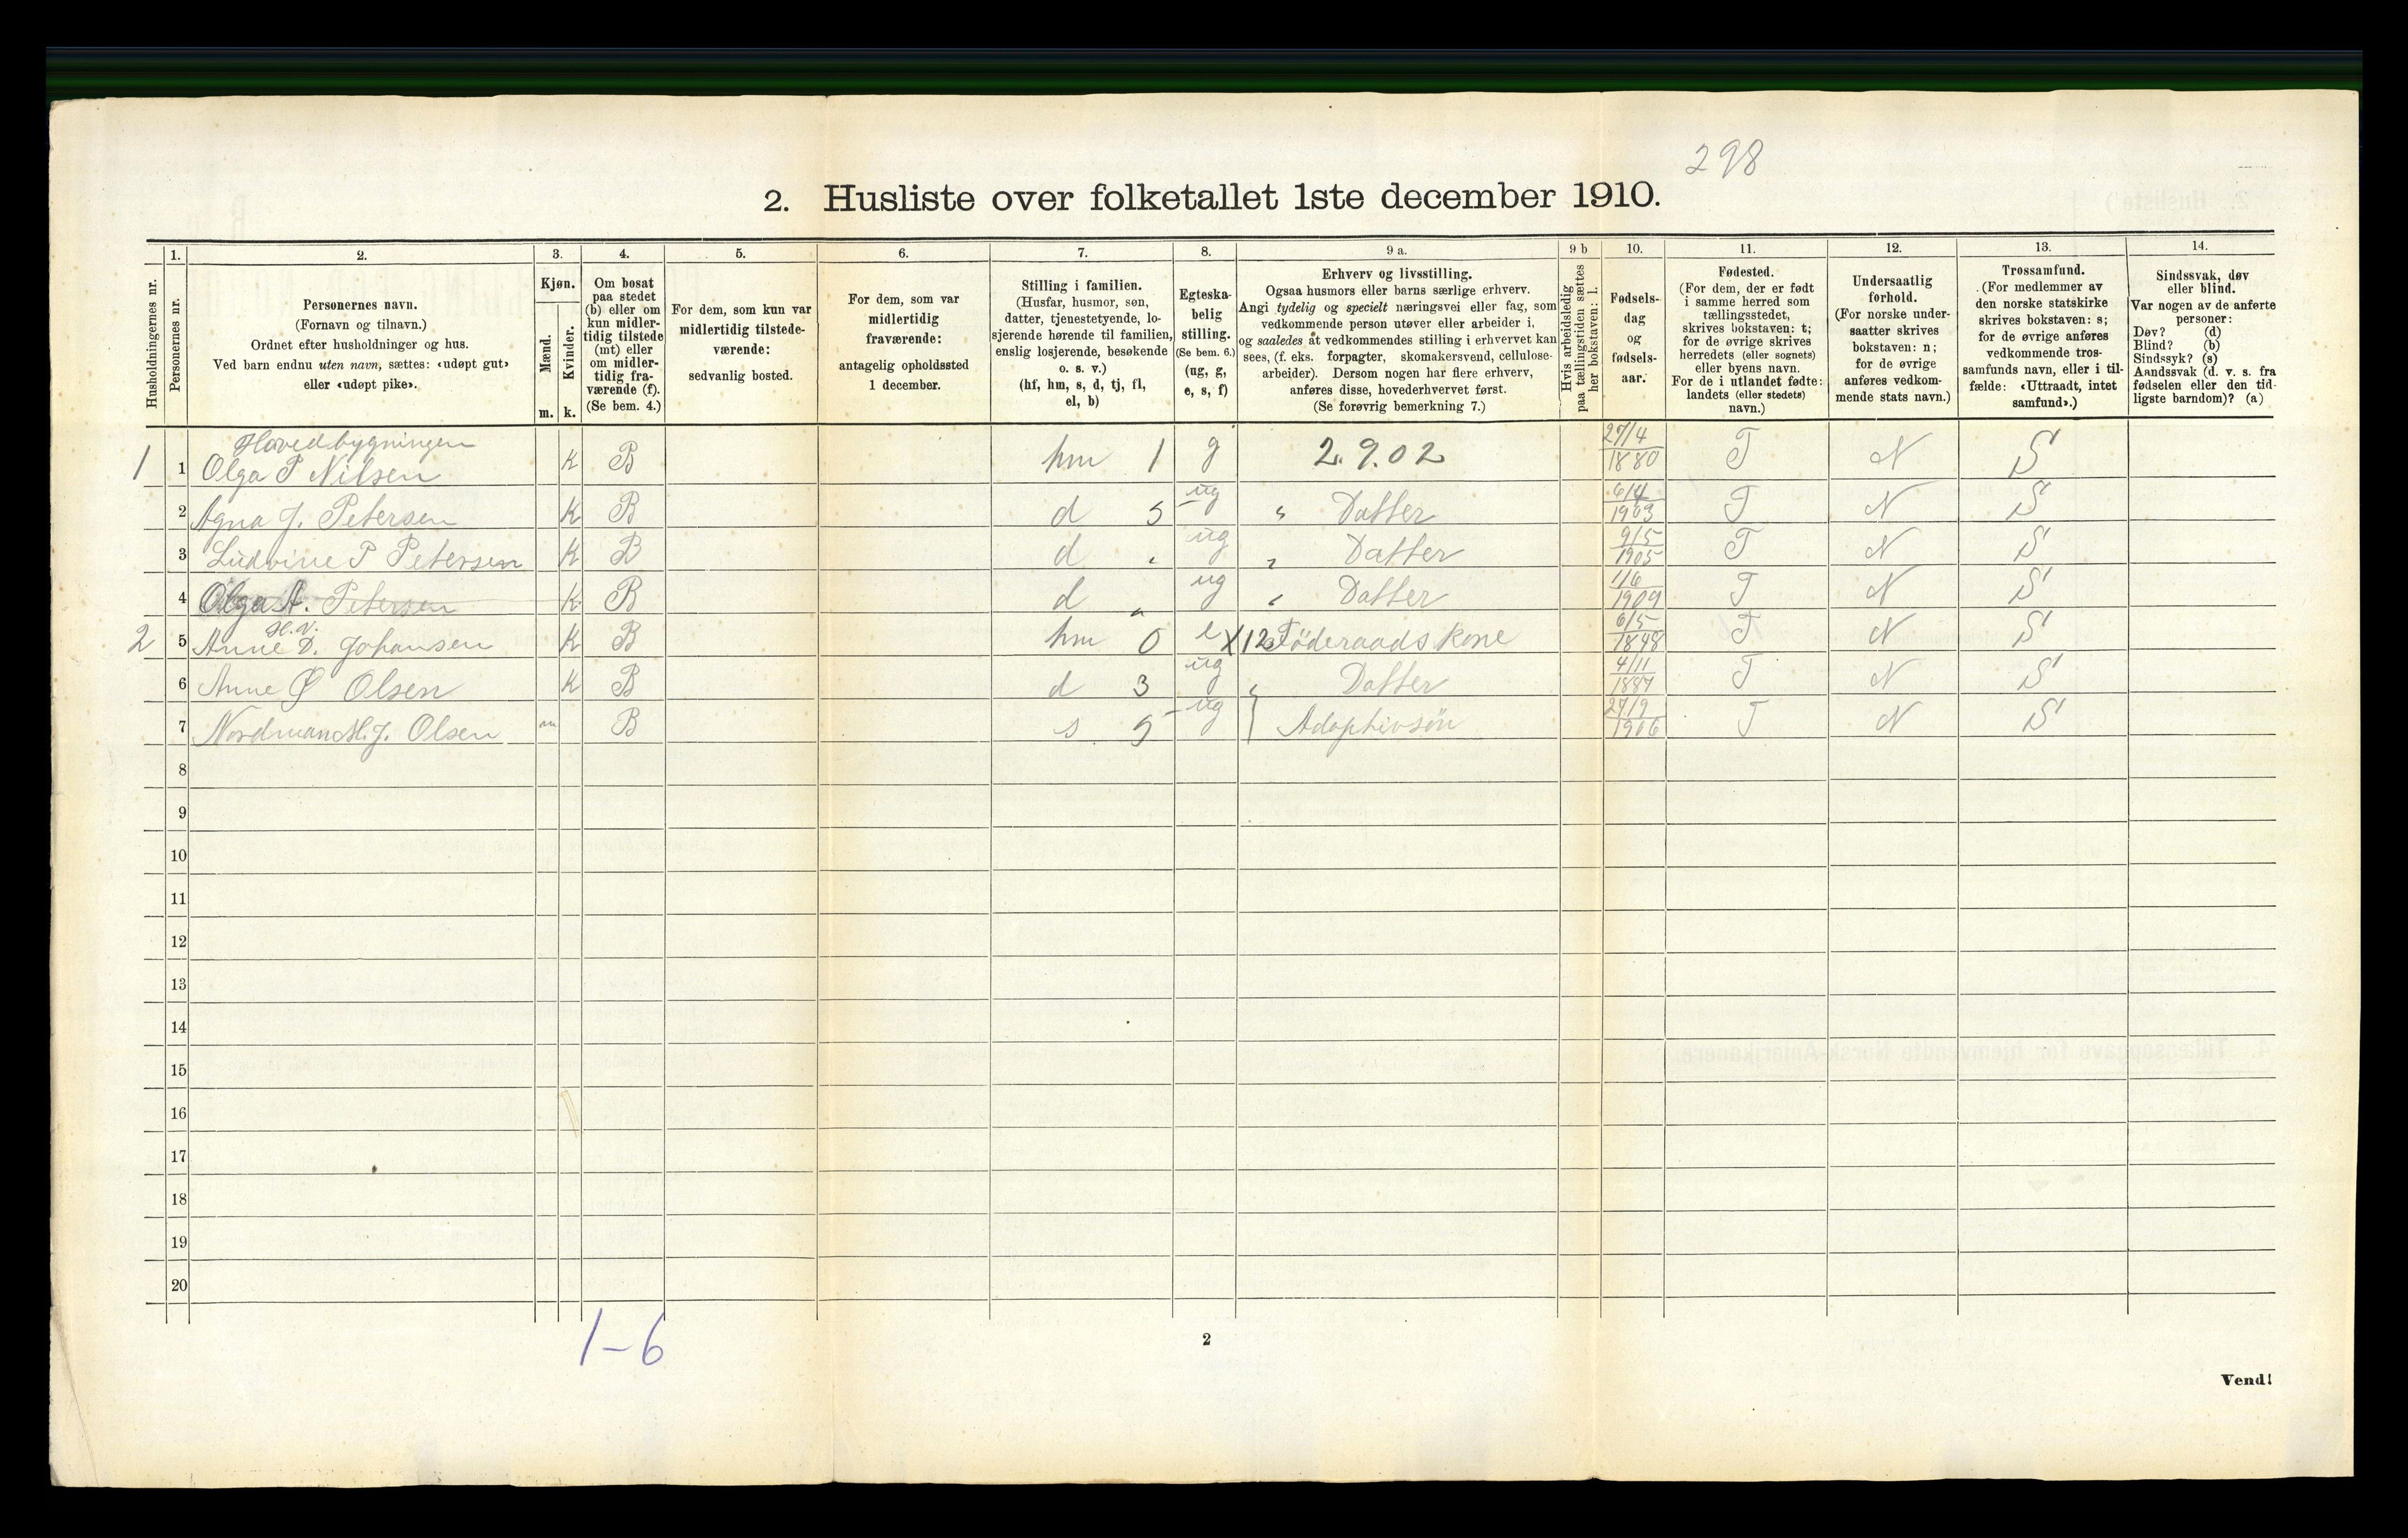 298
2. Husliste over folketallet 1ste december 1910.
Husholdningernes nr.
1.
Personernes nr.
2.
Personernes navn.
(Fornavn og tilnavn.)
Ordnet efter husholdninger og hus.
Ved barn endnu uten navn, sættes: «udøpt gut»
eller «udøpt pike».
3.
Kjøn.
Mænd.
m.
Kvinder.
k.
4.
Om bosat
paa stedet
(b) eller om
kun midler-
tidig tilstede
(mt) eller
om midler-
tidig fra-
værende (f).
(Se bem. 4.)
5.
For dem, som kun var
midlertidig tilstede-
værende:
sedvanlig bosted.
6.
For dem, som var
midlertidig
fraværende:
antagelig opholdssted
1 december.
7.
Stilling i familien.
(Husfar, husmor, søn,
datter, tjenestetyende, lo-
sjerende hørende til familien,
enslig losjerende, besøkende
o. s. v.)
(hf, hm, s, d, tj, fl,
el, b)
8.
Egteska-
belig
stilling.
(Se bem. 6.)
(ug, g,
e, s, f)
9 a.
Erhverv og livsstilling.
Ogsaa husmors eller barns særlige erhverv.
Angi tydelig og specielt næringsvei eller fag, som
vedkommende person utøver eller arbeider i,
og saaledes at vedkommendes stilling i erhvervet kan
sees, (f. eks. forpagter, skomakersvend, cellulose-
arbeider). Dersom nogen har flere erhverv,
anføres disse, hovederhvervet først.
(Se forøvrig bemerkning 7.)
9 b
Hvis arbeidsledig
paa tællingstiden sættes
her bokstaven: l.
10.
Fødsels-
dag
og
fødsels-
aar.
11.
Fødested.
(For dem, der er født
i samme herred som
tællingsstedet,
skrives bokstaven: t;
for de øvrige skrives
herredets (eller sognets)
eller byens navn.
For de i utlandet fødte:
landets (eller stedets)
navn.)
12.
Undersaatlig
forhold.
(For norske under-
saatter skrives
bokstaven: n;
for de øvrige
anføres vedkom-
mende stats navn.)
13.
Trossamfund.
(For medlemmer av
den norske statskirke
skrives bokstaven: s;
for de øvrige anføres
vedkommende tros-
samfunds navn, eller i til-
fælde: «Uttraadt, intet
samfund».)
14.
Sindssvak, døv
eller blind.
Var nogen av de anførte
personer:
Døv? (d)
Blind? (b)
Sindssyk? (s)
Aandssvak (d. v. s. fra
fødselen eller den tid-
ligste barndom)? (a)
Hovedbygningen
1 1 Olga P Nilsen K B hm 1 g 2.9.02 27/4 1880 T N S
2 Agna J. Petersen K B d 5 ug " Datter 6/4 1903 T N S
3 Ludvine P Petersen K B d " ug " Datter 9/5 1905 T N S
4 Olga A. Petersen K B d " ug " Datter 1/6 1909 T N S
H.V.
2 5 Anne D. Johansen K B hm 0 e X12 Föderaadskone 6/5 1848 T N S
6 Anne Ø Olsen K B d 3 ug Datter 4/11 1887 T N S
7 Nordman M. J. Olsen m B s 5 ug Adoptivsön 27/9 1906 T N S
8
9
10
11
12
13
14
15
16
17
18
19
20
1-6
2
Vend!